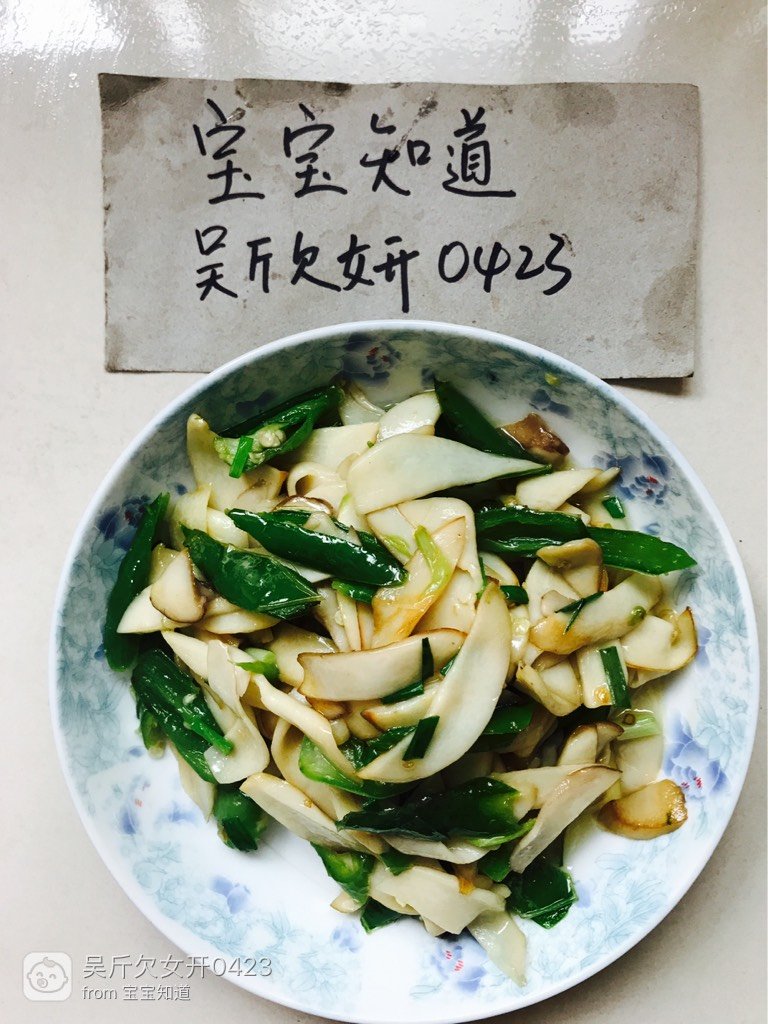 宝宝知道
吴斤欠女开0423
吴斤欠女开0423
from 宝宝知道